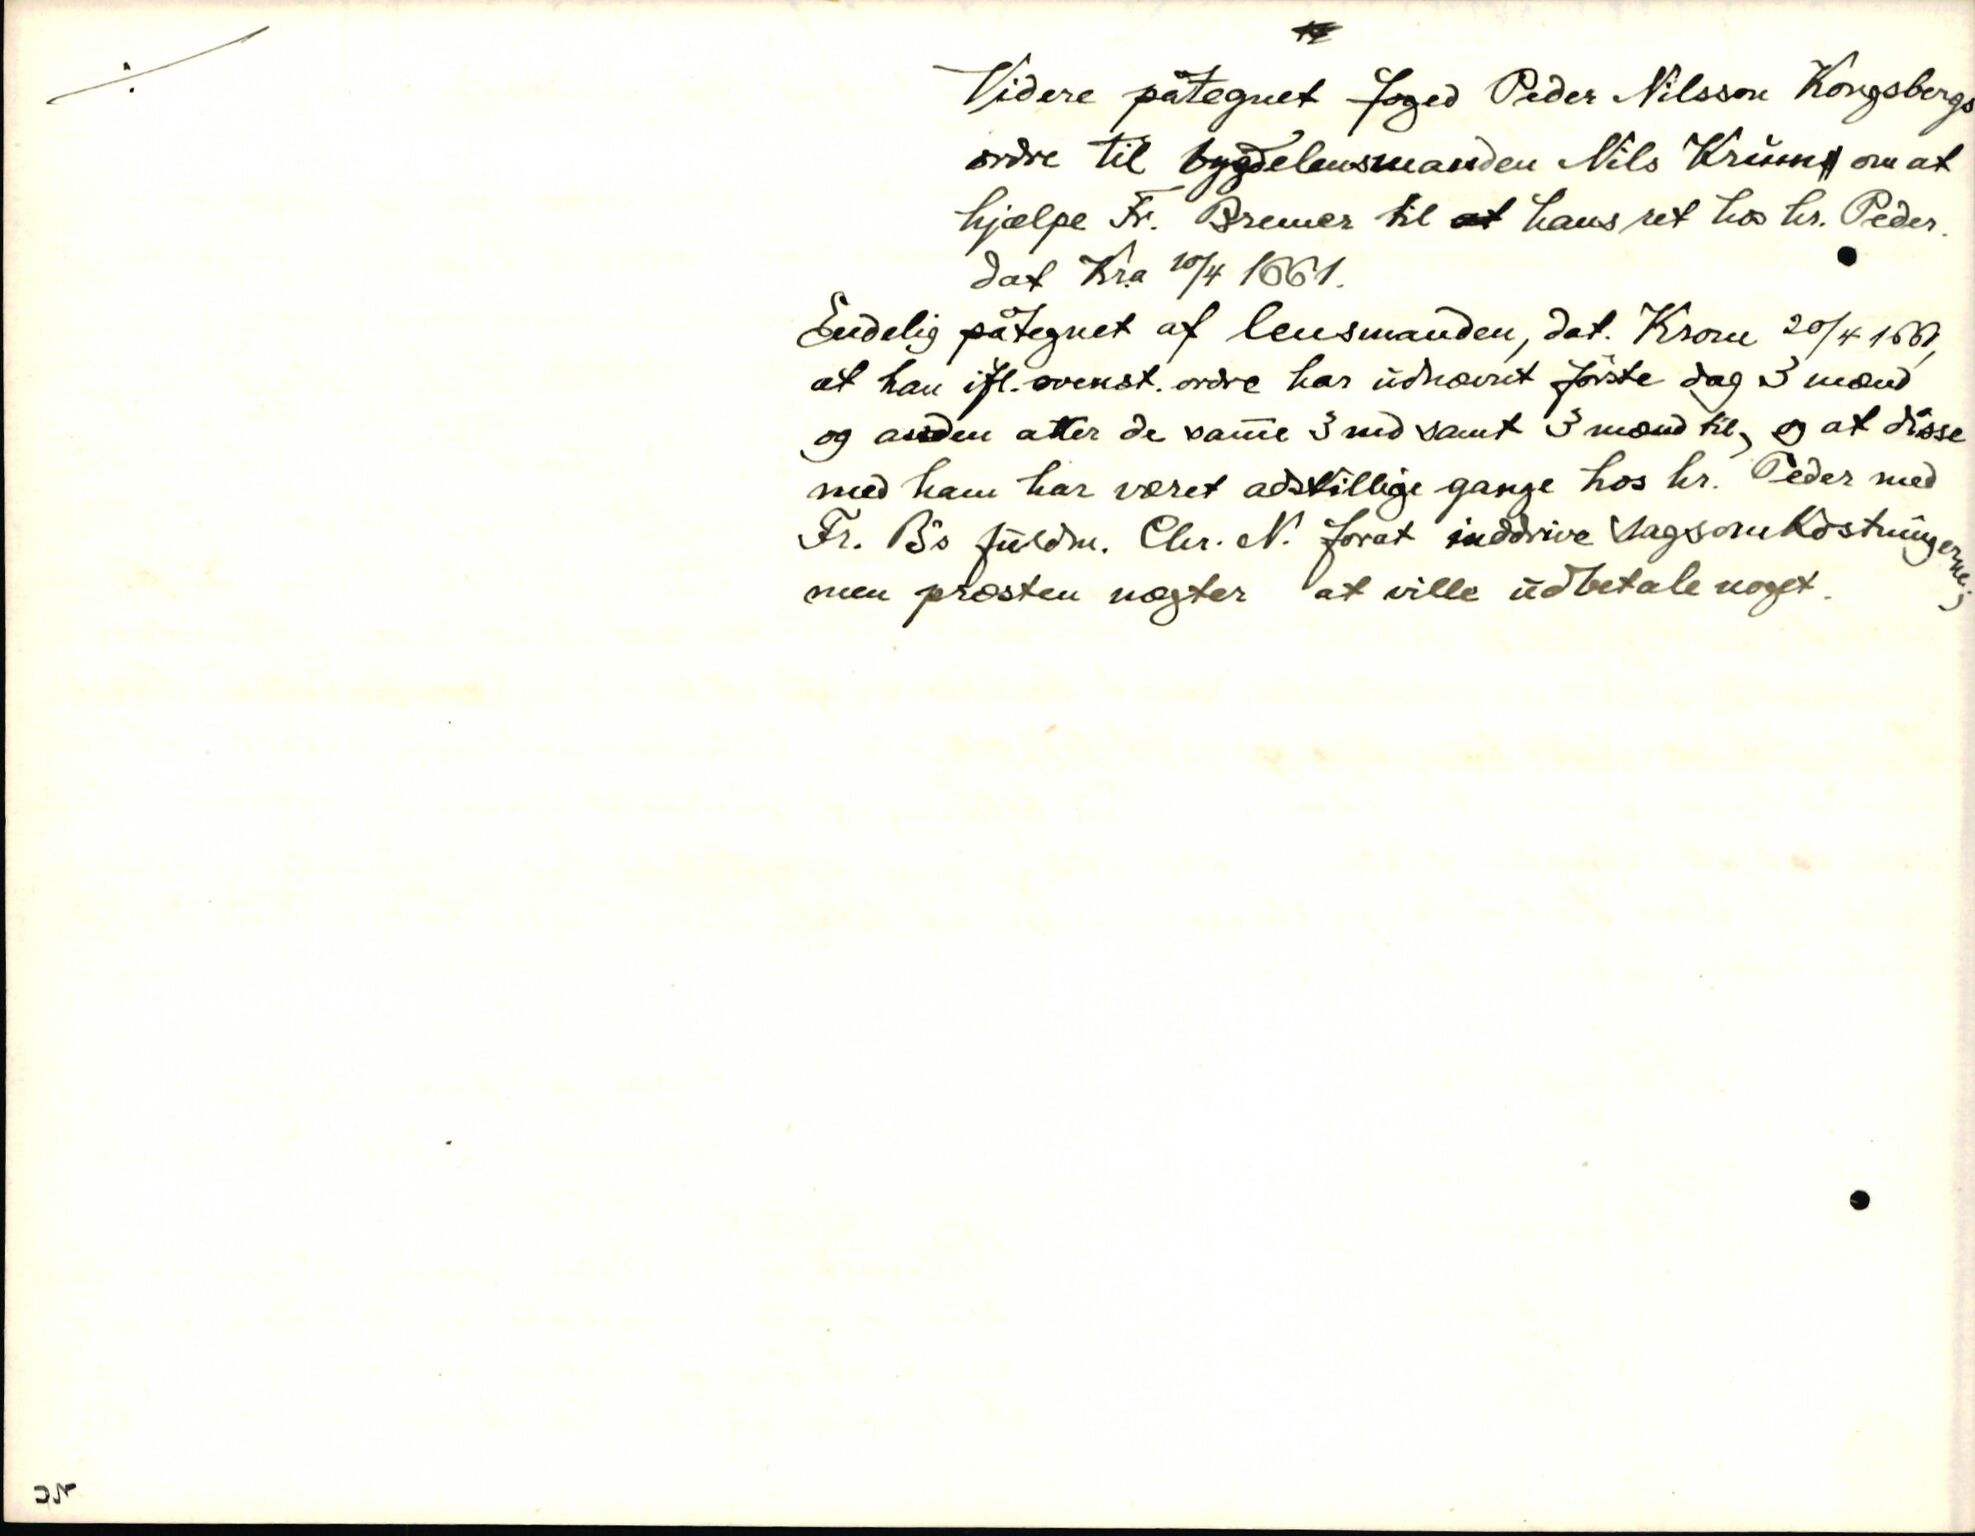 Videre påtegnet foged Peder Nilsson Kongsbergs
ordre til bygdelensmanden Nils Krum om at
hjælpe Fr. Bremer til hans ret hos hr. Peder.
dat Kra 10/4 1661.
Endelig påtegnet af lensmanden, dat. Krom 20/4 1661,
at han ifl. ovenst. ordre har udnævnt første dag 3 mænd
og anden atter de samme 3 md samt 3 mænd til, og at disse
med ham har været adskillige gange hos hr. Peder med
Fr. B's fuldm. Chr. N. forat inddrive sagsomkostningerne;
men præsten nægter at ville udbetale noget.